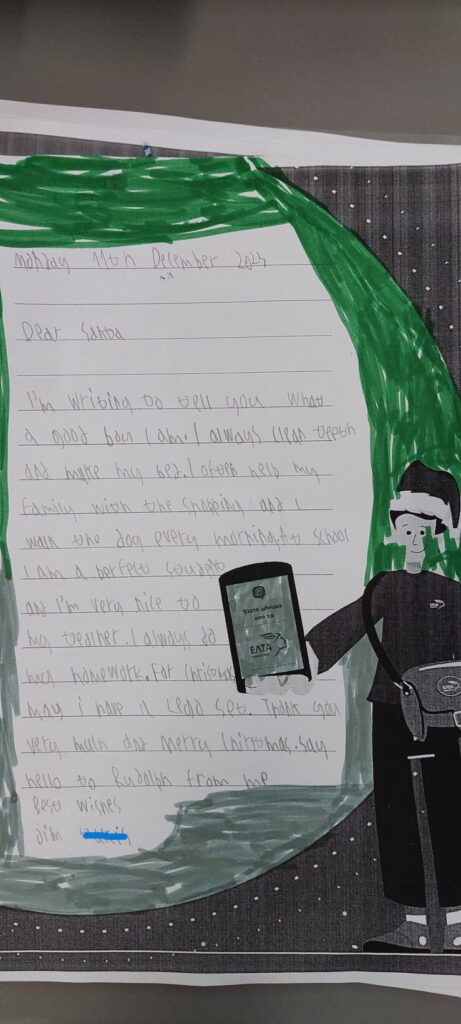 Monday 11th December 2023
Dear Santa
I'm writing to tell you what
a good boy I am. I always clean teeth
and make my bed. I often help my
family with the shopping and I
walk the dog every morning. At school
I am a perfect student
and I'm very nice to
my teacher. I always do
my homework. For Christmas
may i have a Lego set. Thank you
very much and merry Chirstmas. say
hello to Rudolph from me
best wishes
Jim
Έχετε μήνυμα
από τα
ΕΛΤΑ